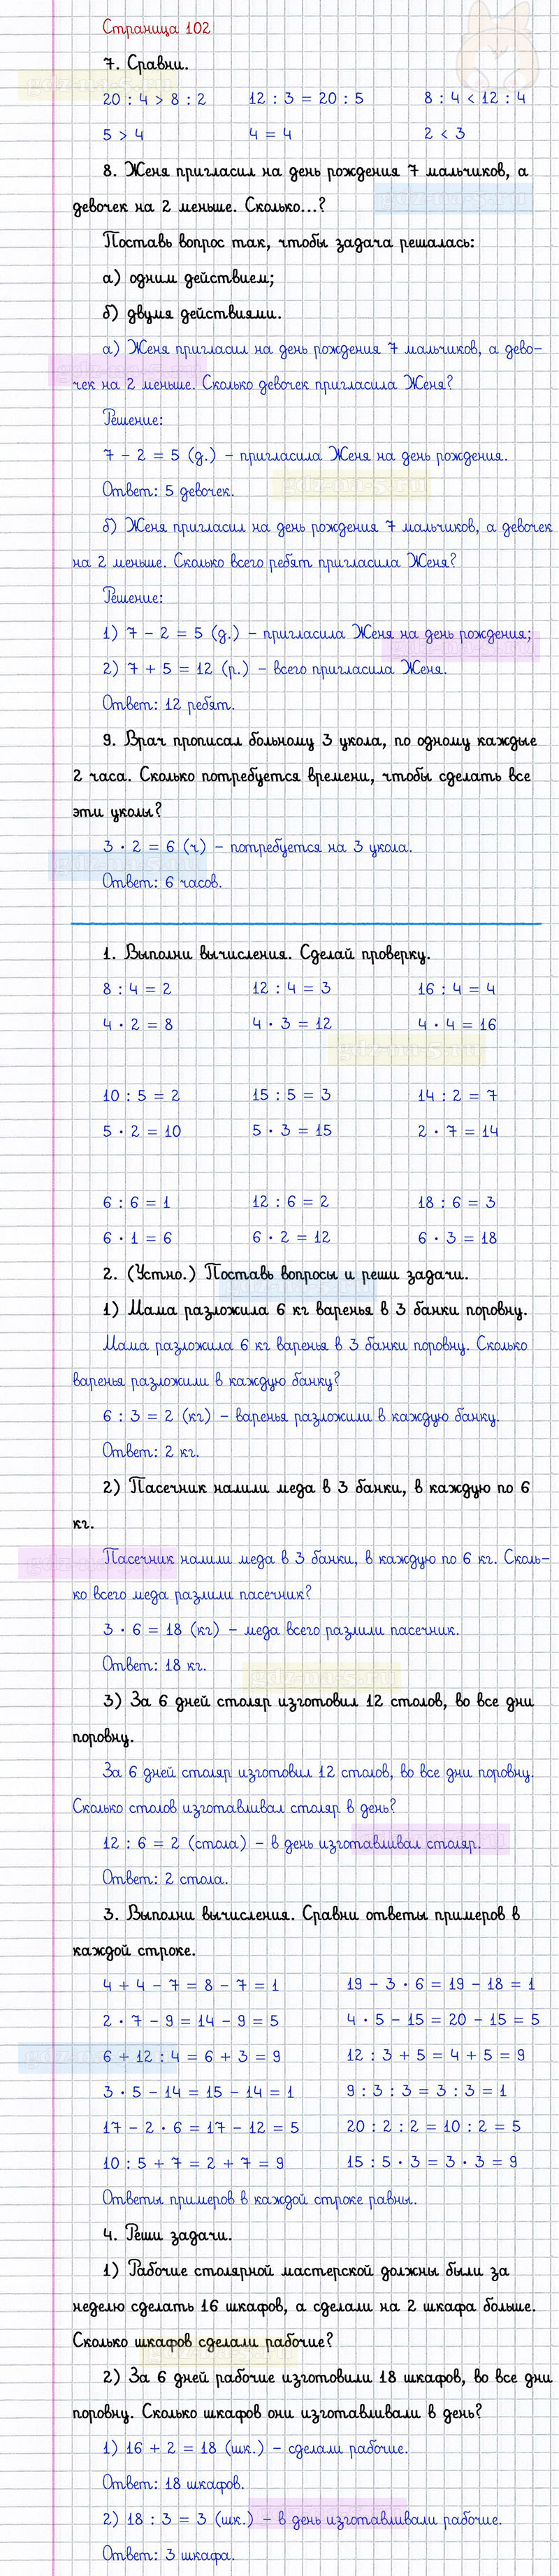 Страница 102
7. Сравни.
20 : 4 > 8 : 2 12 : 3 = 20 : 5 8 : 4 < 12 : 4
5 > 4 4 = 4 2 < 3
8. Женя пригласил на день рождения 7 мальчиков, а
девочек на 2 меньше. Сколько...?
Поставь вопрос так, чтобы задача решалась:
а) одним действием;
б) двумя действиями.
а) Женя пригласил на день рождения 7 мальчиков, а дево-
чек на 2 меньше. Сколько девочек пригласила Женя?
Решение:
7 - 2 = 5 (д.) - пригласила Женя на день рождения.
Ответ: 5 девочек.
б) Женя пригласил на день рождения 7 мальчиков, а девочек
на 2 меньше. Сколько всего ребят пригласила Женя?
Решение:
1) 7 - 2 = 5 (д.) - пригласила Женя на день рождения;
2) 7 + 5 = 12 (р.) - всего пригласила Женя.
Ответ: 12 ребят.
9. Врач прописал больному 3 укола, по одному каждые
2 часа. Сколько потребуется времени, чтобы сделать все
эти уколы?
3 · 2 = 6 (ч) - потребуется на 3 укола.
Ответ: 6 часов.
1. Выполни вычисления. Сделай проверку.
8 : 4 = 2 12 : 4 = 3 16 : 4 = 4
4 · 2 = 8 4 · 3 = 12 4 · 4 = 16
10 : 5 = 2 15 : 5 = 3 14 : 2 = 7
5 · 2 = 10 5 · 3 = 15 2 · 7 = 14
6 : 6 = 1 12 : 6 = 2 18 : 6 = 3
6 · 1 = 6 6 · 2 = 12 6 · 3 = 18
2. (Устно.) Поставь вопросы и реши задачи.
1) Мама разложила 6 кг варенья в 3 банки поровну.
Мама разложила 6 кг варенья в 3 банки поровну. Сколько
варенья разложили в каждую банку?
6 : 3 = 2 (кг) - варенья разложили в каждую банку.
Ответ: 2 кг.
2) Пасечник налили меда в 3 банки, в каждую по 6
кг.
Пасечник налили меда в 3 банки, в каждую по 6 кг. Сколь-
ко всего меда разлили пасечник?
3 · 6 = 18 (кг) - меда всего разлили пасечник.
Ответ: 18 кг.
3) За 6 дней столяр изготовил 12 столов, во все дни
поровну.
За 6 дней столяр изготовил 12 столов, во все дни поровну.
Сколько столов изготавливал столяр в день?
12 : 6 = 2 (стола) - в день изготавливал столяр.
Ответ: 2 стола.
3. Выполни вычисления. Сравни ответы примеров в
каждой строке.
4 + 4 - 7 = 8 - 7 = 1 19 - 3 · 6 = 19 - 18 = 1
2 · 7 - 9 = 14 - 9 = 5 4 · 5 - 15 = 20 - 15 = 5
6 + 12 : 4 = 6 + 3 = 9 12 : 3 + 5 = 4 + 5 = 9
3 · 5 - 14 = 15 - 14 = 1 9 : 3 : 3 = 3 : 3 = 1
17 - 2 · 6 = 17 - 12 = 5 20 : 2 : 2 = 10 : 2 = 5
10 : 5 + 7 = 2 + 7 = 9 15 : 5 · 3 = 3 · 3 = 9
Ответы примеров в каждой строке равны.
4. Реши задачи.
1) Рабочие столярной мастерской должны были за
неделю сделать 16 шкафов, а сделали на 2 шкафа больше.
Сколько шкафов сделали рабочие?
2) За 6 дней рабочие изготовили 18 шкафов, во все дни
поровну. Сколько шкафов они изготавливали в день?
1) 16 + 2 = 18 (шк.) - сделали рабочие.
Ответ: 18 шкафов.
2) 18 : 3 = 3 (шк.) - в день изготавливали рабочие.
Ответ: 3 шкафа.